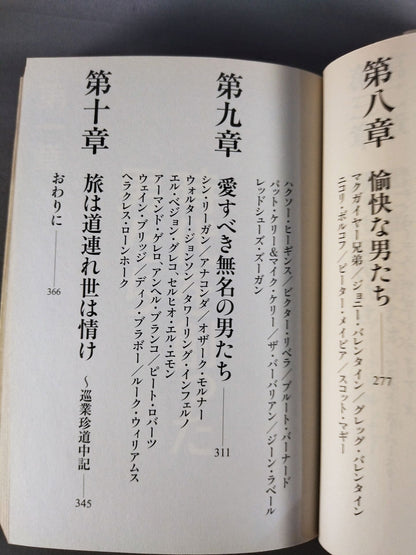 第八章 愉快な男たち 277
マクガイヤー兄弟／ジョニー・バレンタイン／グレッグ・バレンタイン
ニコリ・ボルコフ／ピーター・メイビア／スコット・マギー
ハクソー・ヒギンス／ビクター・リベラ／ブルート・バーナード
パット・ケリー&マイク・ケリー／ザ・バーバリアン／ジーン・ラベール
レッドシューズ・ズーガン
第九章 愛すべき無名の男たち 311
シン・リーガン／アナコンダ／オザーク・モルナー
ウォルター・ジョンソン／タワーリング・インフェルノ
エル・ベジョン・グレコ、セルヒオ・エル・エモン
アーマンド・ゲレロ、アンヘル・ブランコ／ピート・ロバーツ
ウェイン・ブリッジ／ディノ・ブラボー／ルーク・ウィリアムス
ヘラクレス・ローンホーク
第十章 旅は道連れ世は情け ～巡業珍道中記 345
おわりに 366